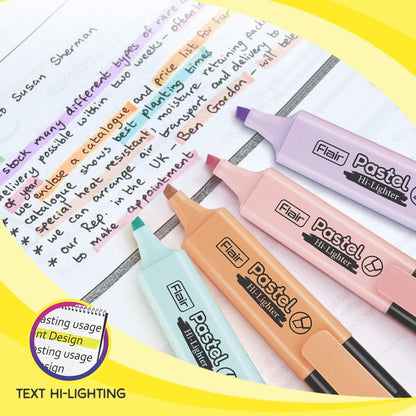 o Susan Sherman
stock many different types of rare
delivery possible within two weeks - often
of year
we enclose a catalogue and price list for
* catalogue shows best planting times
* special heat resistant moisture retaining
* we can arrange air transport and delivery to
* our Rep. in the UK - Ben Gordon - will
to make appointment
Flair
Pastel
Hi-Lighter
Flair
Pastel
Hi-Lighter
Flair
Pastel
Hi-Lighter
Flair
Pastel
Hi-Lighter
asting usage
nt Design
esting usage
esign
TEXT HI-LIGHTING